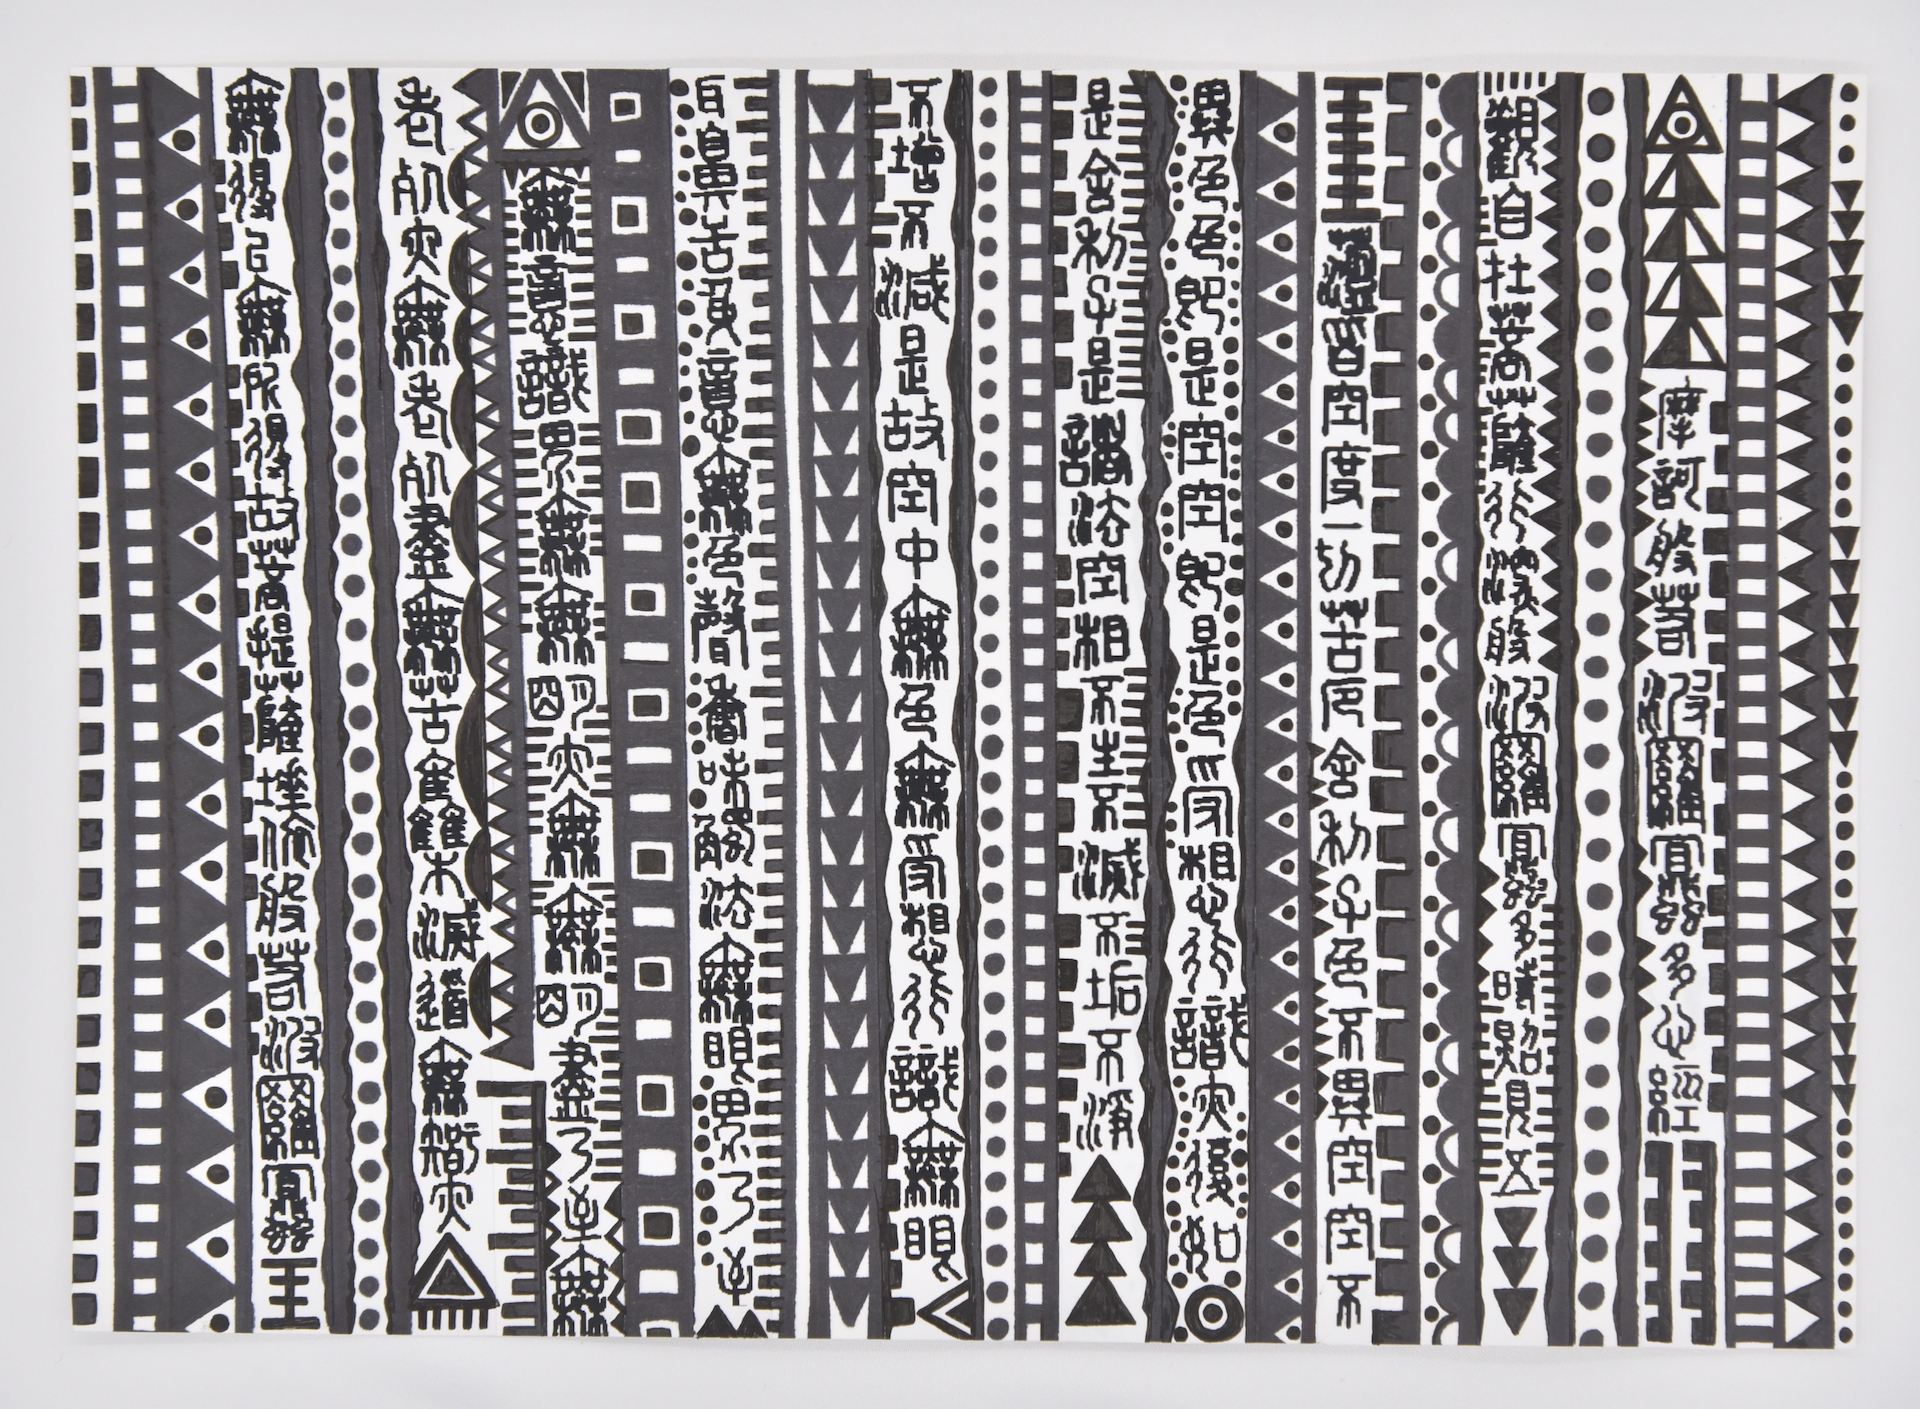 摩訶般若波羅蜜多心經
觀自在菩薩行深般若波羅蜜多時照見五
蘊皆空度一切苦厄舍利子色不異空空不
異色色即是空空即是色受想行識亦復如
是舍利子是諸法空相不生不滅不垢不淨
不增不減是故空中無色無受想行識無眼
耳鼻舌身意無色聲香味觸法無眼界乃至
無意識界無無明亦無無明盡乃至無
老死亦無老死盡無苦集滅道無智亦
無得以無所得故菩提薩埵依般若波羅蜜